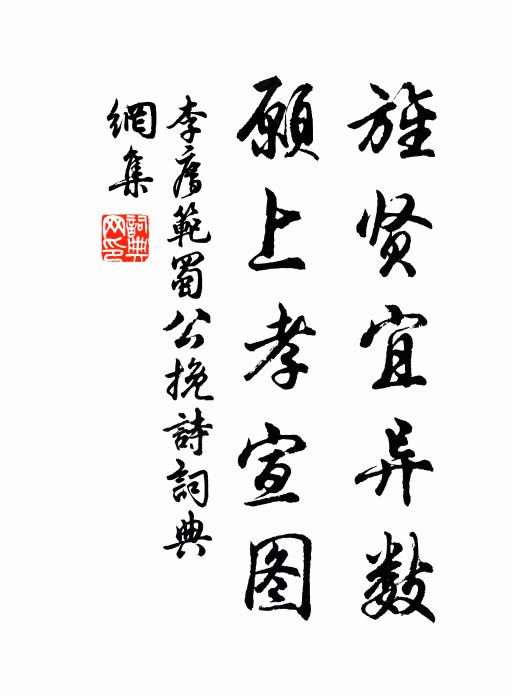 旌贤宜异数
願上孝宣图
李廌範蜀公挽詩詞典
網集
詞典网印